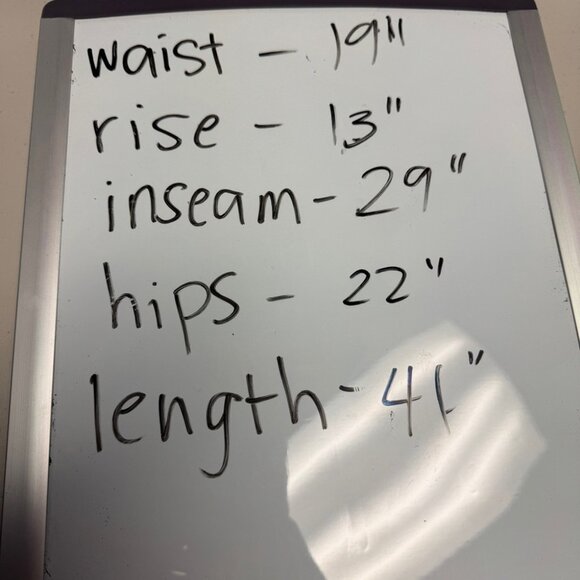 waist - 19"
rise - 13"
inseam - 29"
hips - 22"
length - 41"